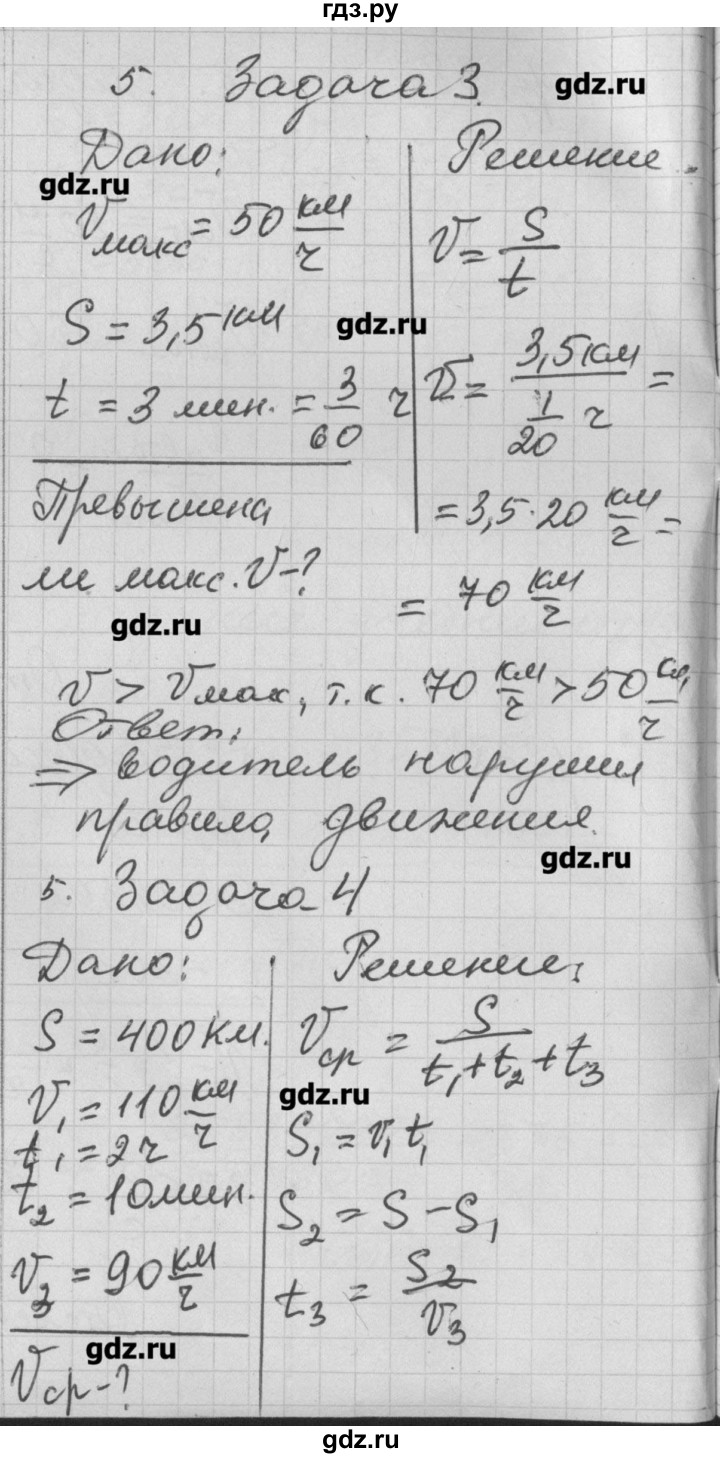 гдз.ру
5. Задача 3.
gdz.ru
Дано:
gdz.ru
Vмакс = 50 км/ч
S = 3,5 км
gdz.ru
t = 3 мин. = 3/60 ч
Превышена
ли макс. V-?
gdz.ru
Решение.
V = S/t
V = 3,5 км / 1/20 ч =
= 3,5 · 20 км/ч =
= 70 км/ч
V > Vмах, т.к. 70 км/ч > 50 км/ч
Ответ:
⇒ водитель нарушил
правила движения.
gdz.ru
5. Задача 4
Дано:
S = 400 км.
V1 = 110 км/ч
t1 = 2 ч
t2 = 10 мин.
V3 = 90 км/ч
gdz.ru
Vср-?
Решение:
Vср = S / t1 + t2 + t3
gdz.ru
S1 = V1 t1
S2 = S - S1
t3 = S2 / V3
gdz.ru